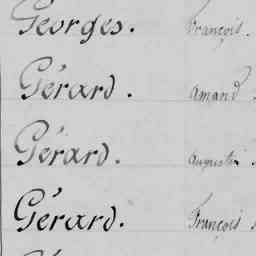 Georges. François.
Gérard. Amand.
Gérard. Augustin.
Gérard. François.